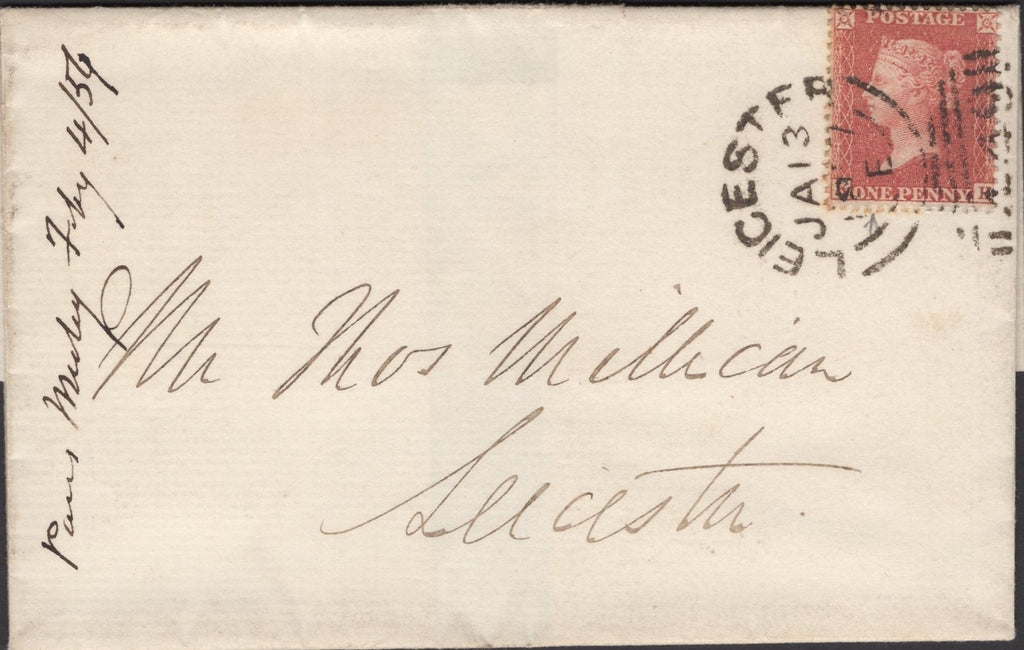 POSTAGE
ONE PENNY
LEICESTER
JA 13
E
449
Mr Thos Millican
Leicester.
Feby 4/56